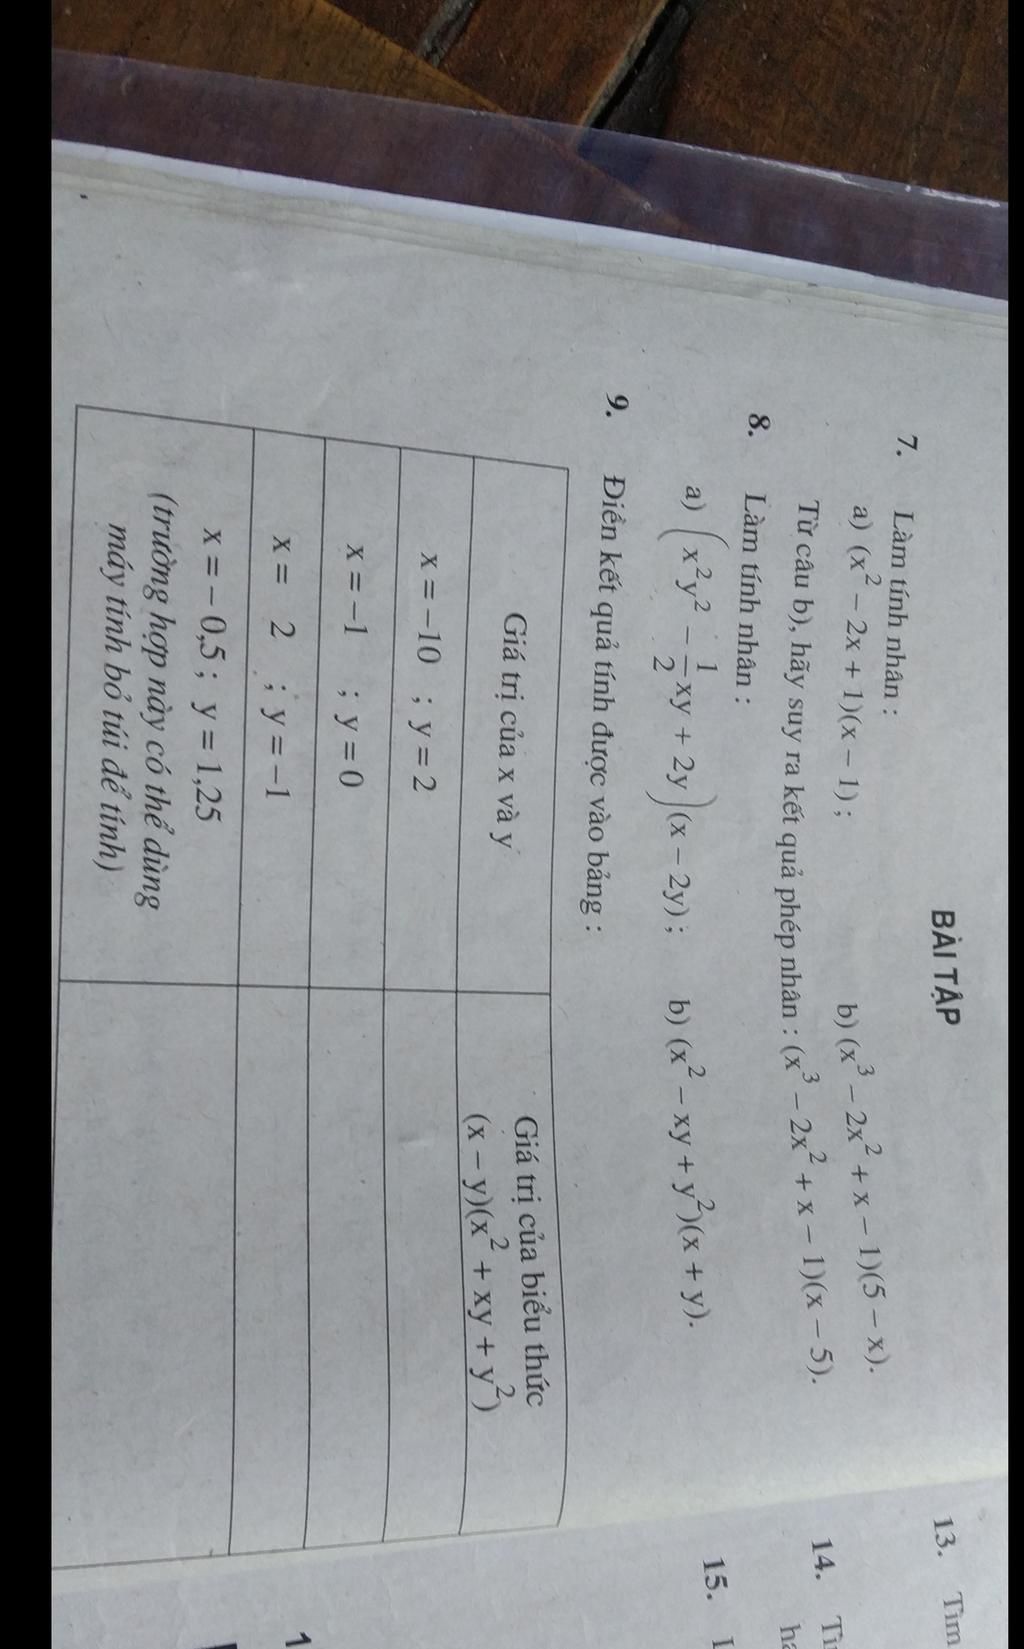 BÀI TẬP
7. Làm tính nhân :
a) (x² – 2x + 1)(x – 1) ; b) (x³ – 2x² + x – 1)(5 – x).
Từ câu b), hãy suy ra kết quả phép nhân : (x³ – 2x² + x – 1)(x – 5).
8. Làm tính nhân :
a) (x²y² – 1/2 xy + 2y)(x – 2y) ; b) (x² – xy + y²)(x + y).
9. Điền kết quả tính được vào bảng :
Giá trị của x và y
Giá trị của biểu thức
(x – y)(x² + xy + y²)
x = –10 ; y = 2
x = –1 ; y = 0
x = 2 ; y = –1
x = – 0,5 ; y = 1,25
(trường hợp này có thể dùng
máy tính bỏ túi để tính)
13. Tìm
14.
15.
1